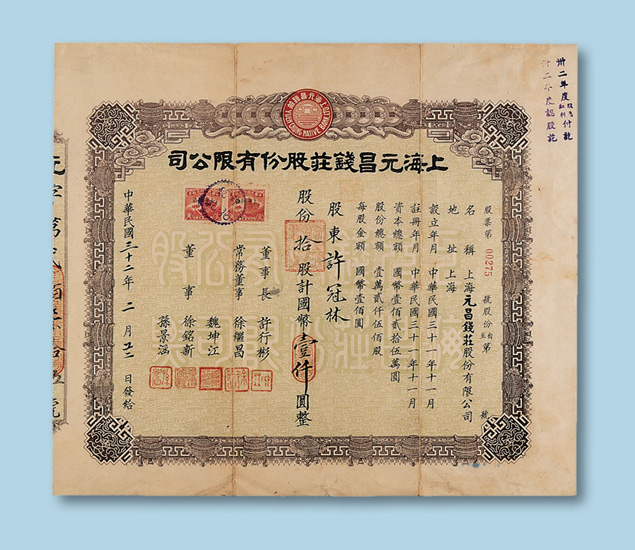 上海元昌錢莊股份有限公司
股票第 00275 號股份自至第 號
名稱 上海元昌錢莊股份有限公司
地址 上海
設立年月 中華民國三十一年十一月
註冊年月 中華民國三十一年十一月
資本總額 國幣壹佰貳拾伍萬圓
股份總額 壹萬貳仟伍佰股
每股金額 國幣壹佰圓
股東 許冠林
股份拾股計國幣壹仟圓整
董事長 許行彬
常務董事 徐繼昌
魏坤江
董事 徐銘新
孫景涵
中華民國三十二年二月 日發給
卅二年度股息紅利付訖
卅二年度認股訖